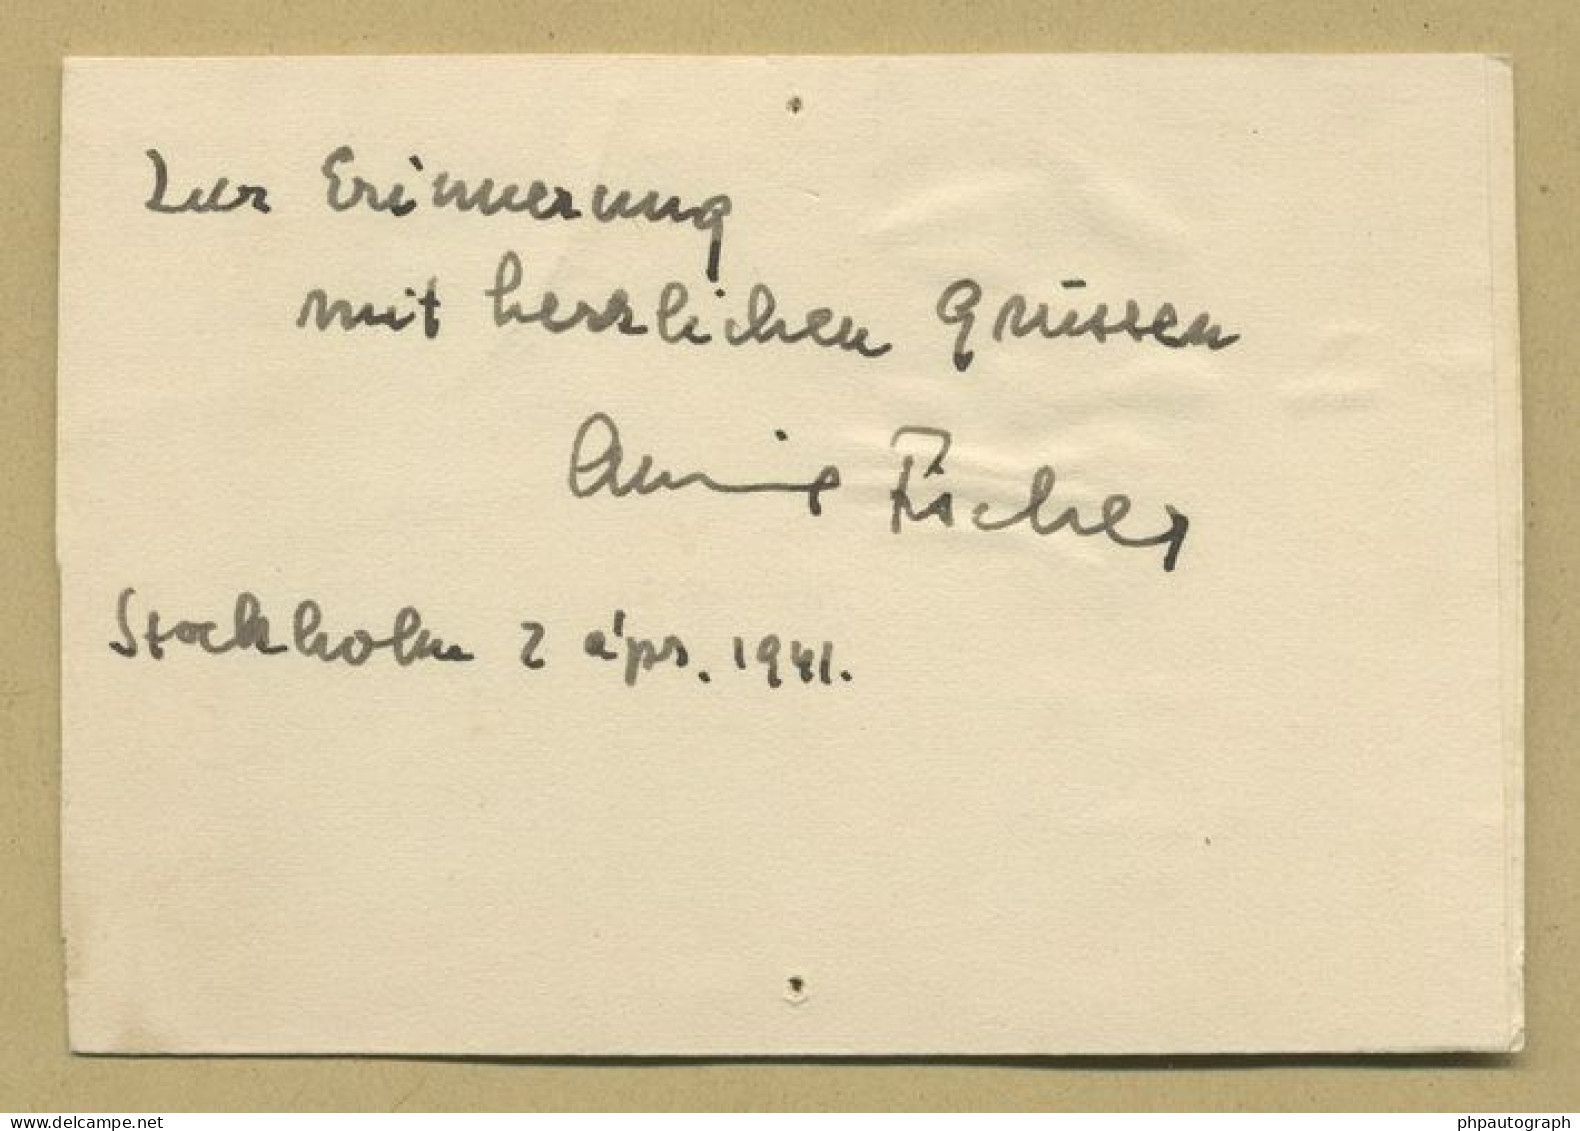 Zur Erinnerung
mit herzlichen Grüssen
Annie Fischer
Stockholm 2 ápr. 1941.
delcampe.net
phpautograph